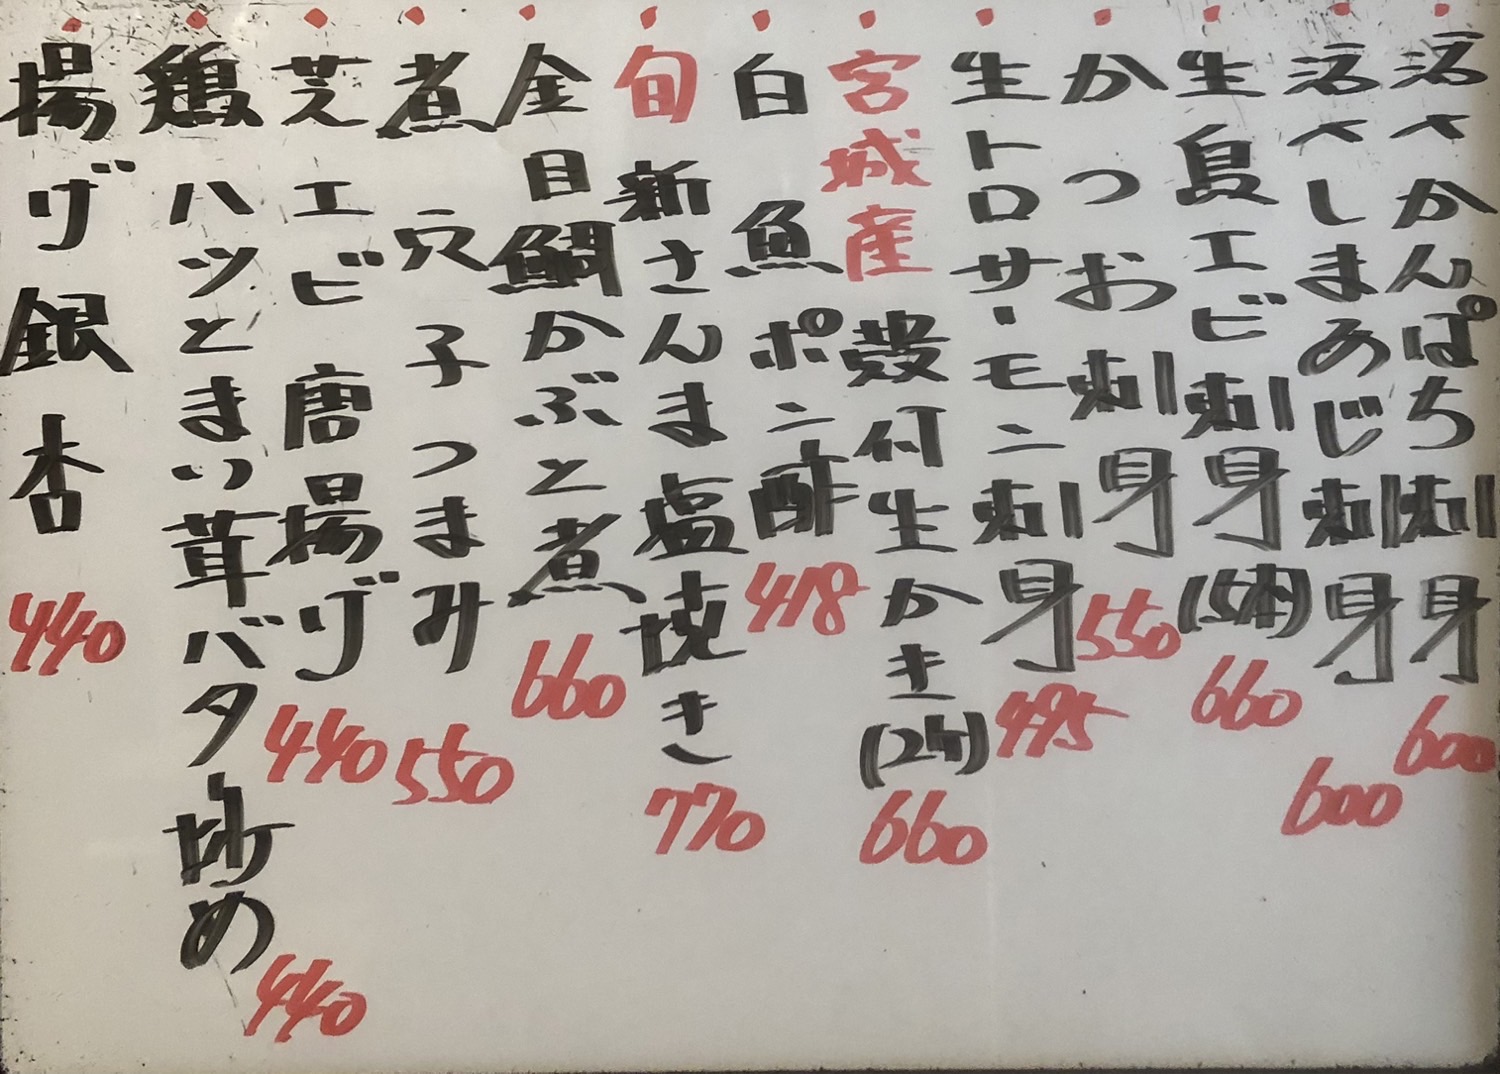 活〆かんぱち刺身 600
活〆しまあじ刺身 600
生島エビ刺身(5本) 660
かつお刺身 550
生トロサーモン刺身 495
宮城産 殻付生かき(2ケ) 660
白魚ポン酢 418
旬 新さんま塩焼き 770
金目鯛かぶと煮 660
煮穴子つまみ 550
芝エビ唐揚げ 440
鶏ハツとまい茸バタ炒め 440
揚げ銀杏 440